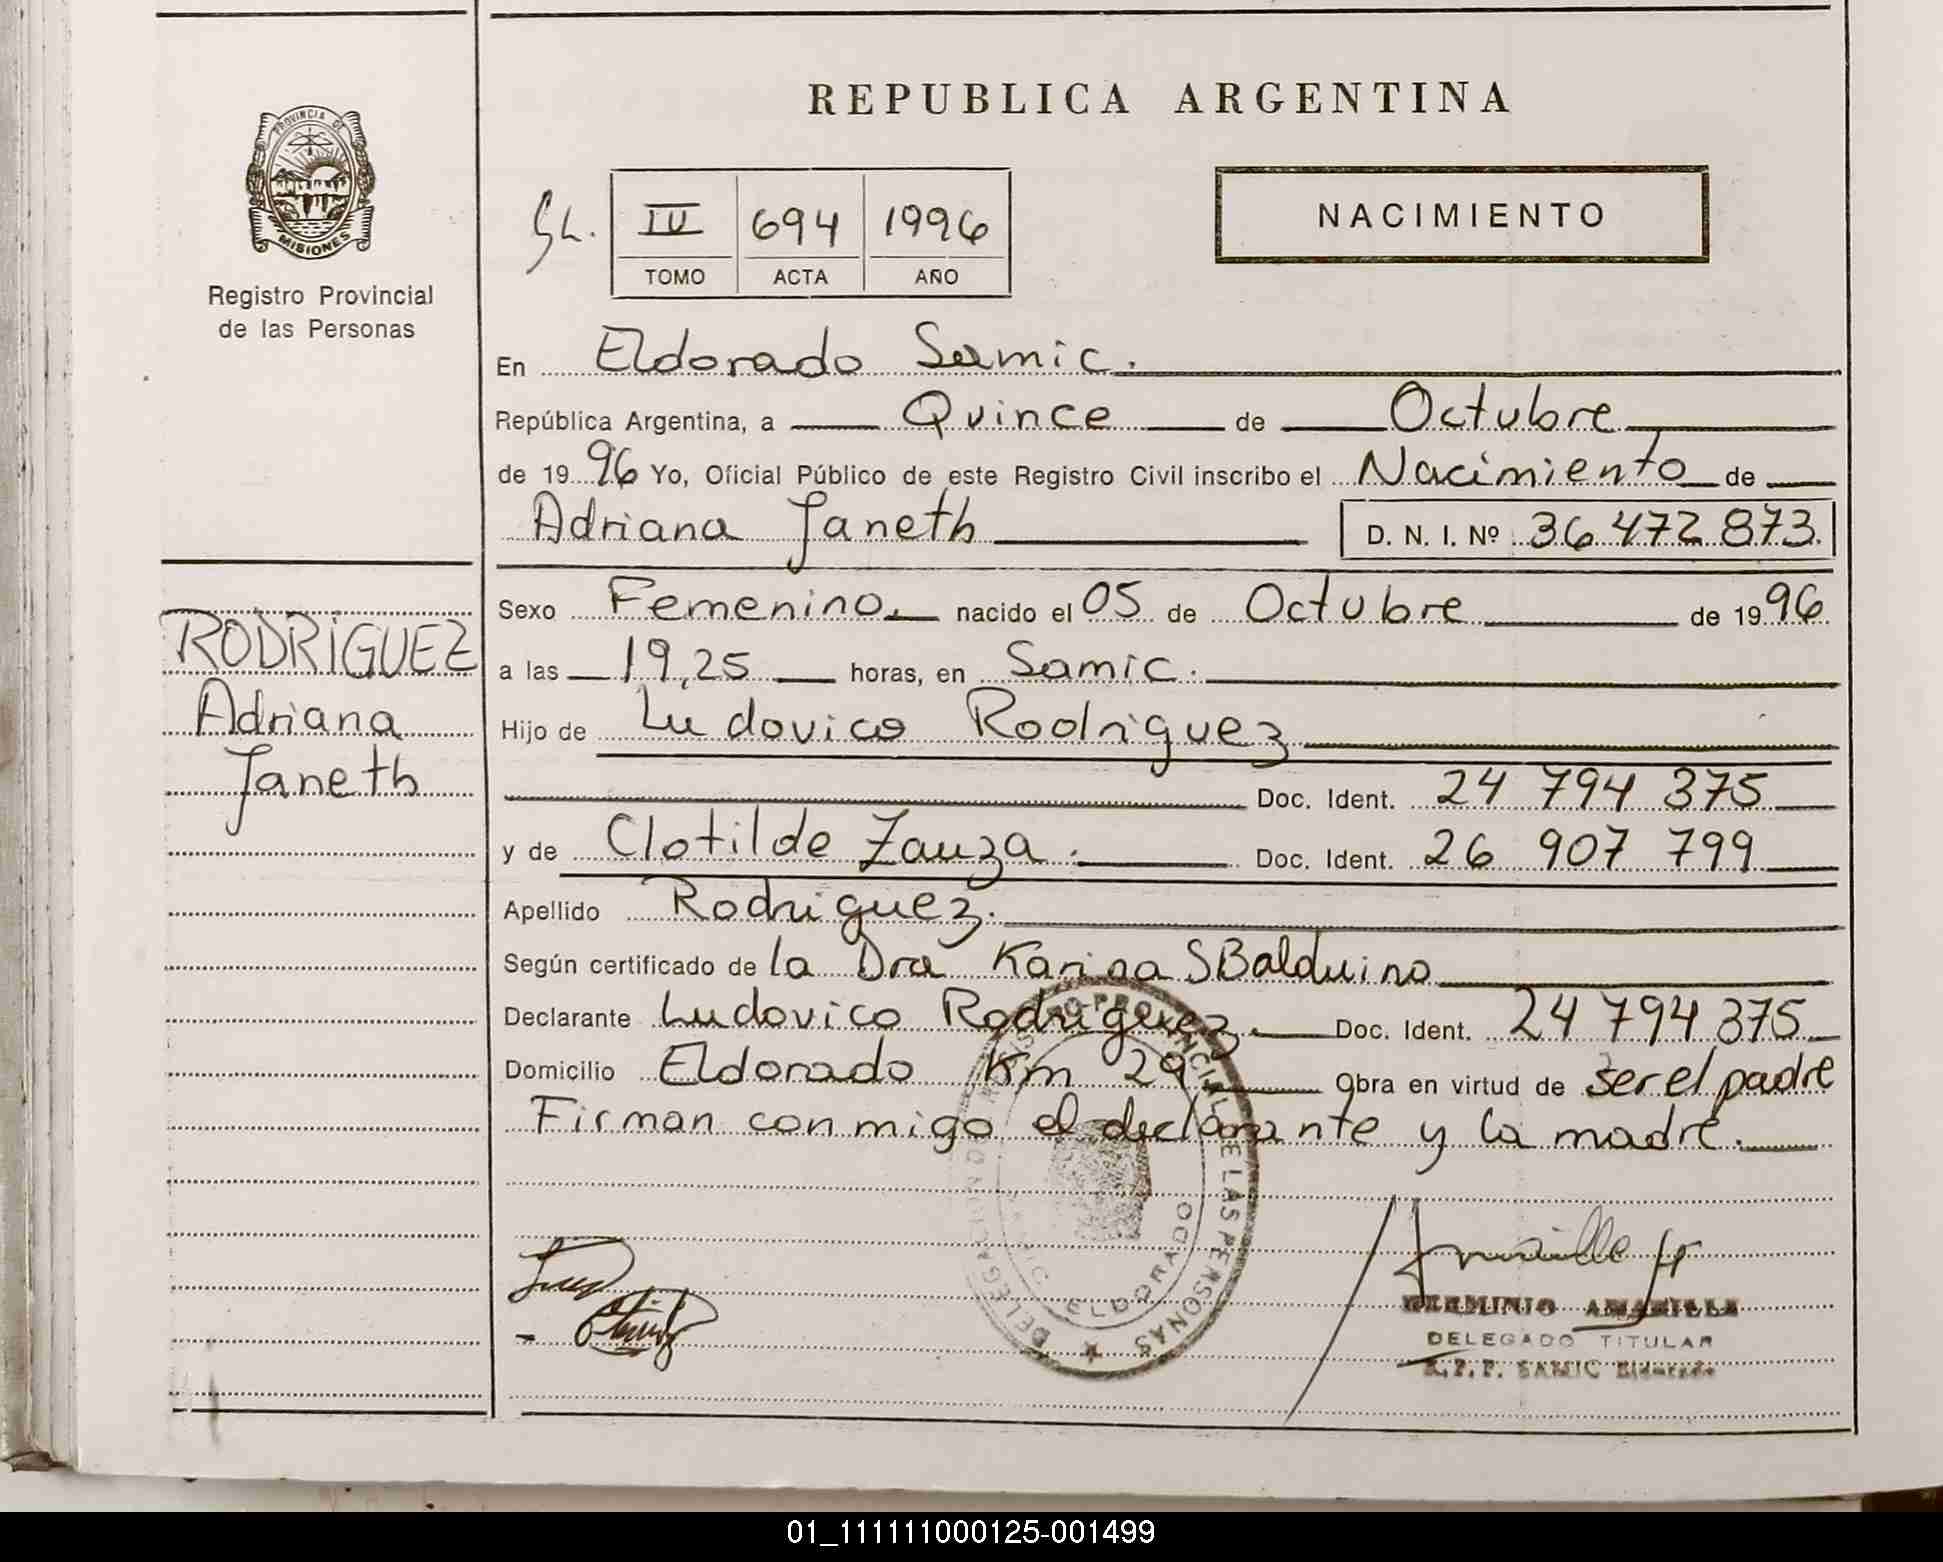 REPUBLICA ARGENTINA
PROVINCIA DE
MISIONES
Registro Provincial
de las Personas
IV 694 1996
TOMO ACTA AÑO
NACIMIENTO
En Eldorado Samic.
República Argentina, a Quince de Octubre
de 1996 Yo, Oficial Público de este Registro Civil inscribo el Nacimiento de
Adriana Janeth D. N. I. Nº 36 472 873.
Sexo Femenino nacido el 05 de Octubre de 1996
a las 19,25 horas, en Samic.
Hijo de Ludovico Rodriguez
Doc. Ident. 24 794 375
y de Clotilde Zauza. Doc. Ident. 26 907 799
Apellido Rodriguez.
Según certificado de la Dra Karina S Balduino
Declarante Ludovico Rodriguez. Doc. Ident. 24 794 375
Domicilio Eldorado Km 29 Obra en virtud de ser el padre
Firman conmigo el declarante y la madre.
RODRIGUEZ
Adriana
Janeth
REGISTRO PROVINCIAL DE LAS PERSONAS
DELEGACION
ELDORADO
HERMINIO AMARILLA
DELEGADO TITULAR
R.P.P. SAMIC Eldorado
01_111111000125-001499